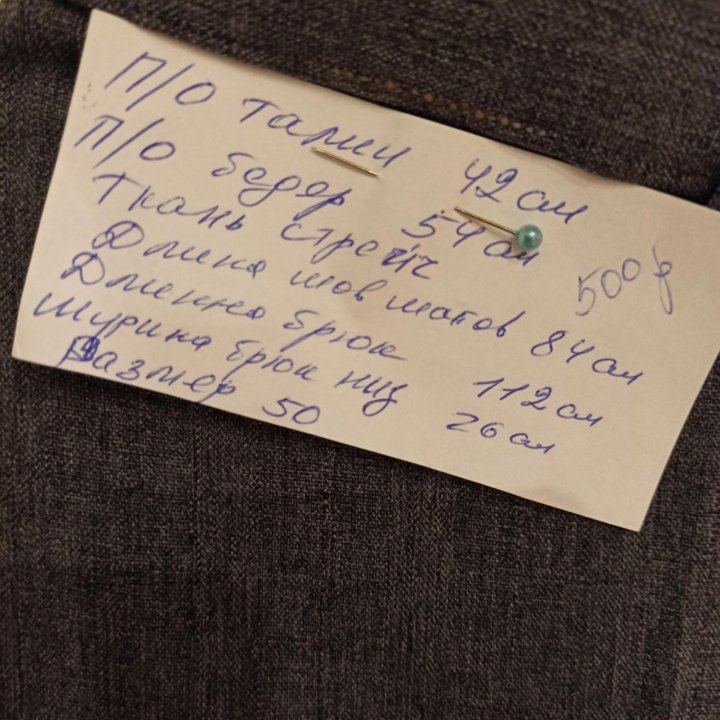 П/О талии 42 см
П/О бедер 54 см
Ткань стрейч
Длина шов шагов 84 см
Длинна брюк 112 см
Шурина брюк низ 26 см
Размер 50
500 р